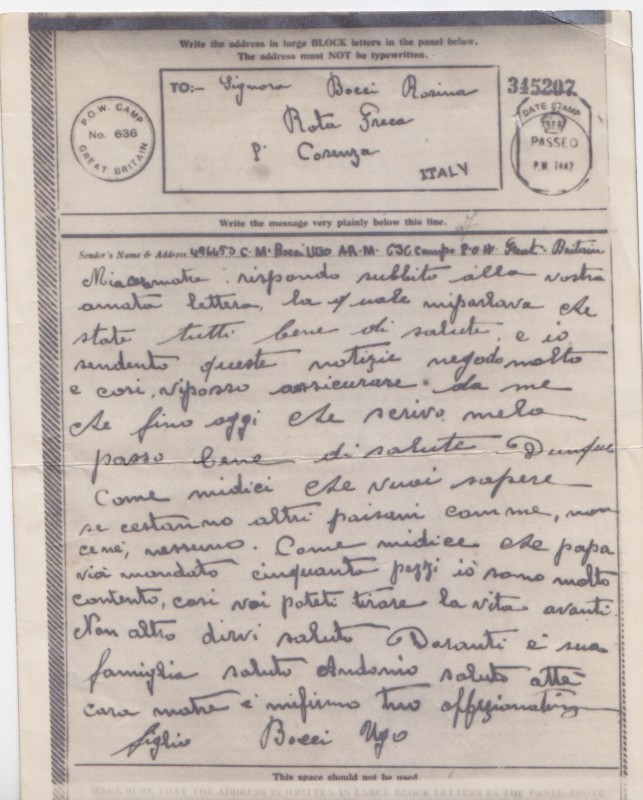 Write the address in large BLOCK letters in the panel below.
The address must NOT be typewritten.
P.O.W. CAMP
No. 636
GREAT BRITAIN
TO:- Signora Bocci Rosina
Rota Greca
P. Cosenza
ITALY
345207
DATE STAMP
PASSED
P.W. 7447
Write the message very plainly below this line.
Sender's Name & Address 496653 C.M. Bocci Ugo AR.M. 636 Campo P.O.W. Great Britain
Mia cara matre rispondo subbito alla vostra
amata lettera, la quale miparlava che
state tutti bene di salute, e io
sendento queste notizie negodo molto
e cosi, viposso assicurare da me
che fino oggi che scrivo mela
passo bene di salute Dunque
Come midici che vuoi sapere
se cestanno altri paisani comme, non
cene, nessuno. Come midice che papa
via mandato cinquanta pezzi io sono molto
contento, cosi voi poteti tirare la vita avanti.
Non altro dirvi saluto Doranti e sua
famiglia saluto Andonio saluto atté
cara matre e mifirmo tuo
figlio Bocci Ugo
This space should not be used.
MAKE SURE THAT THE ADDRESS IS WRITTEN IN LARGE BLOCK LETTERS IN THE PANEL ABOVE